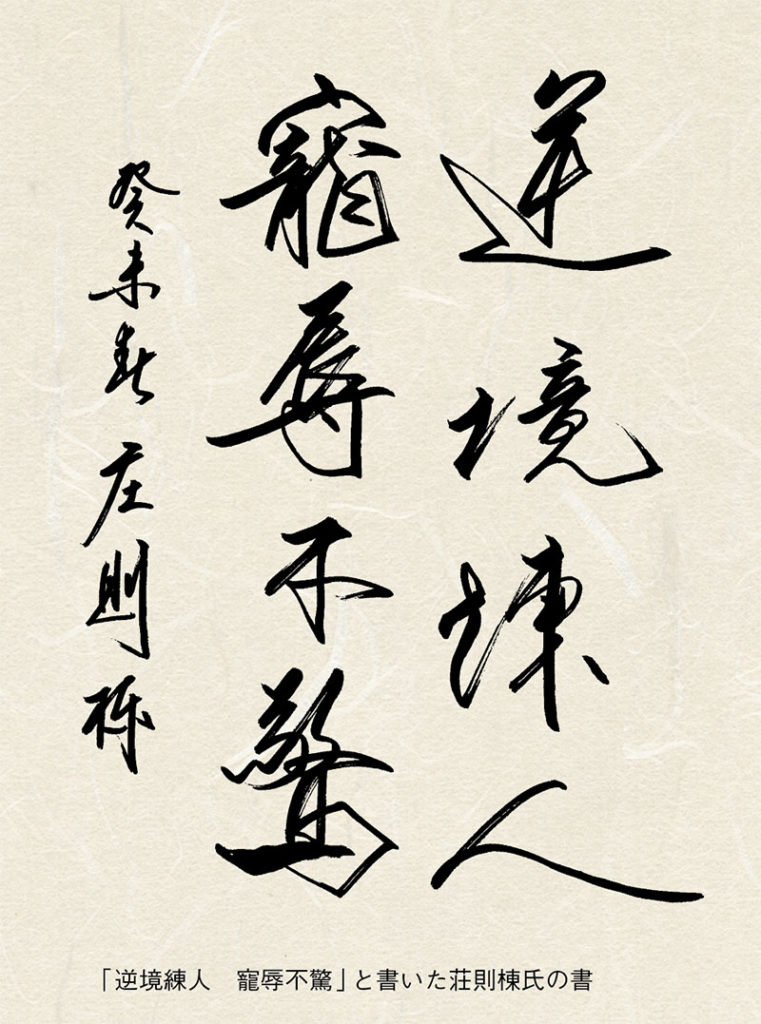 逆境煉人
寵辱不驚
癸未春 庄则栋
「逆境練人　寵辱不驚」と書いた荘則棟氏の書